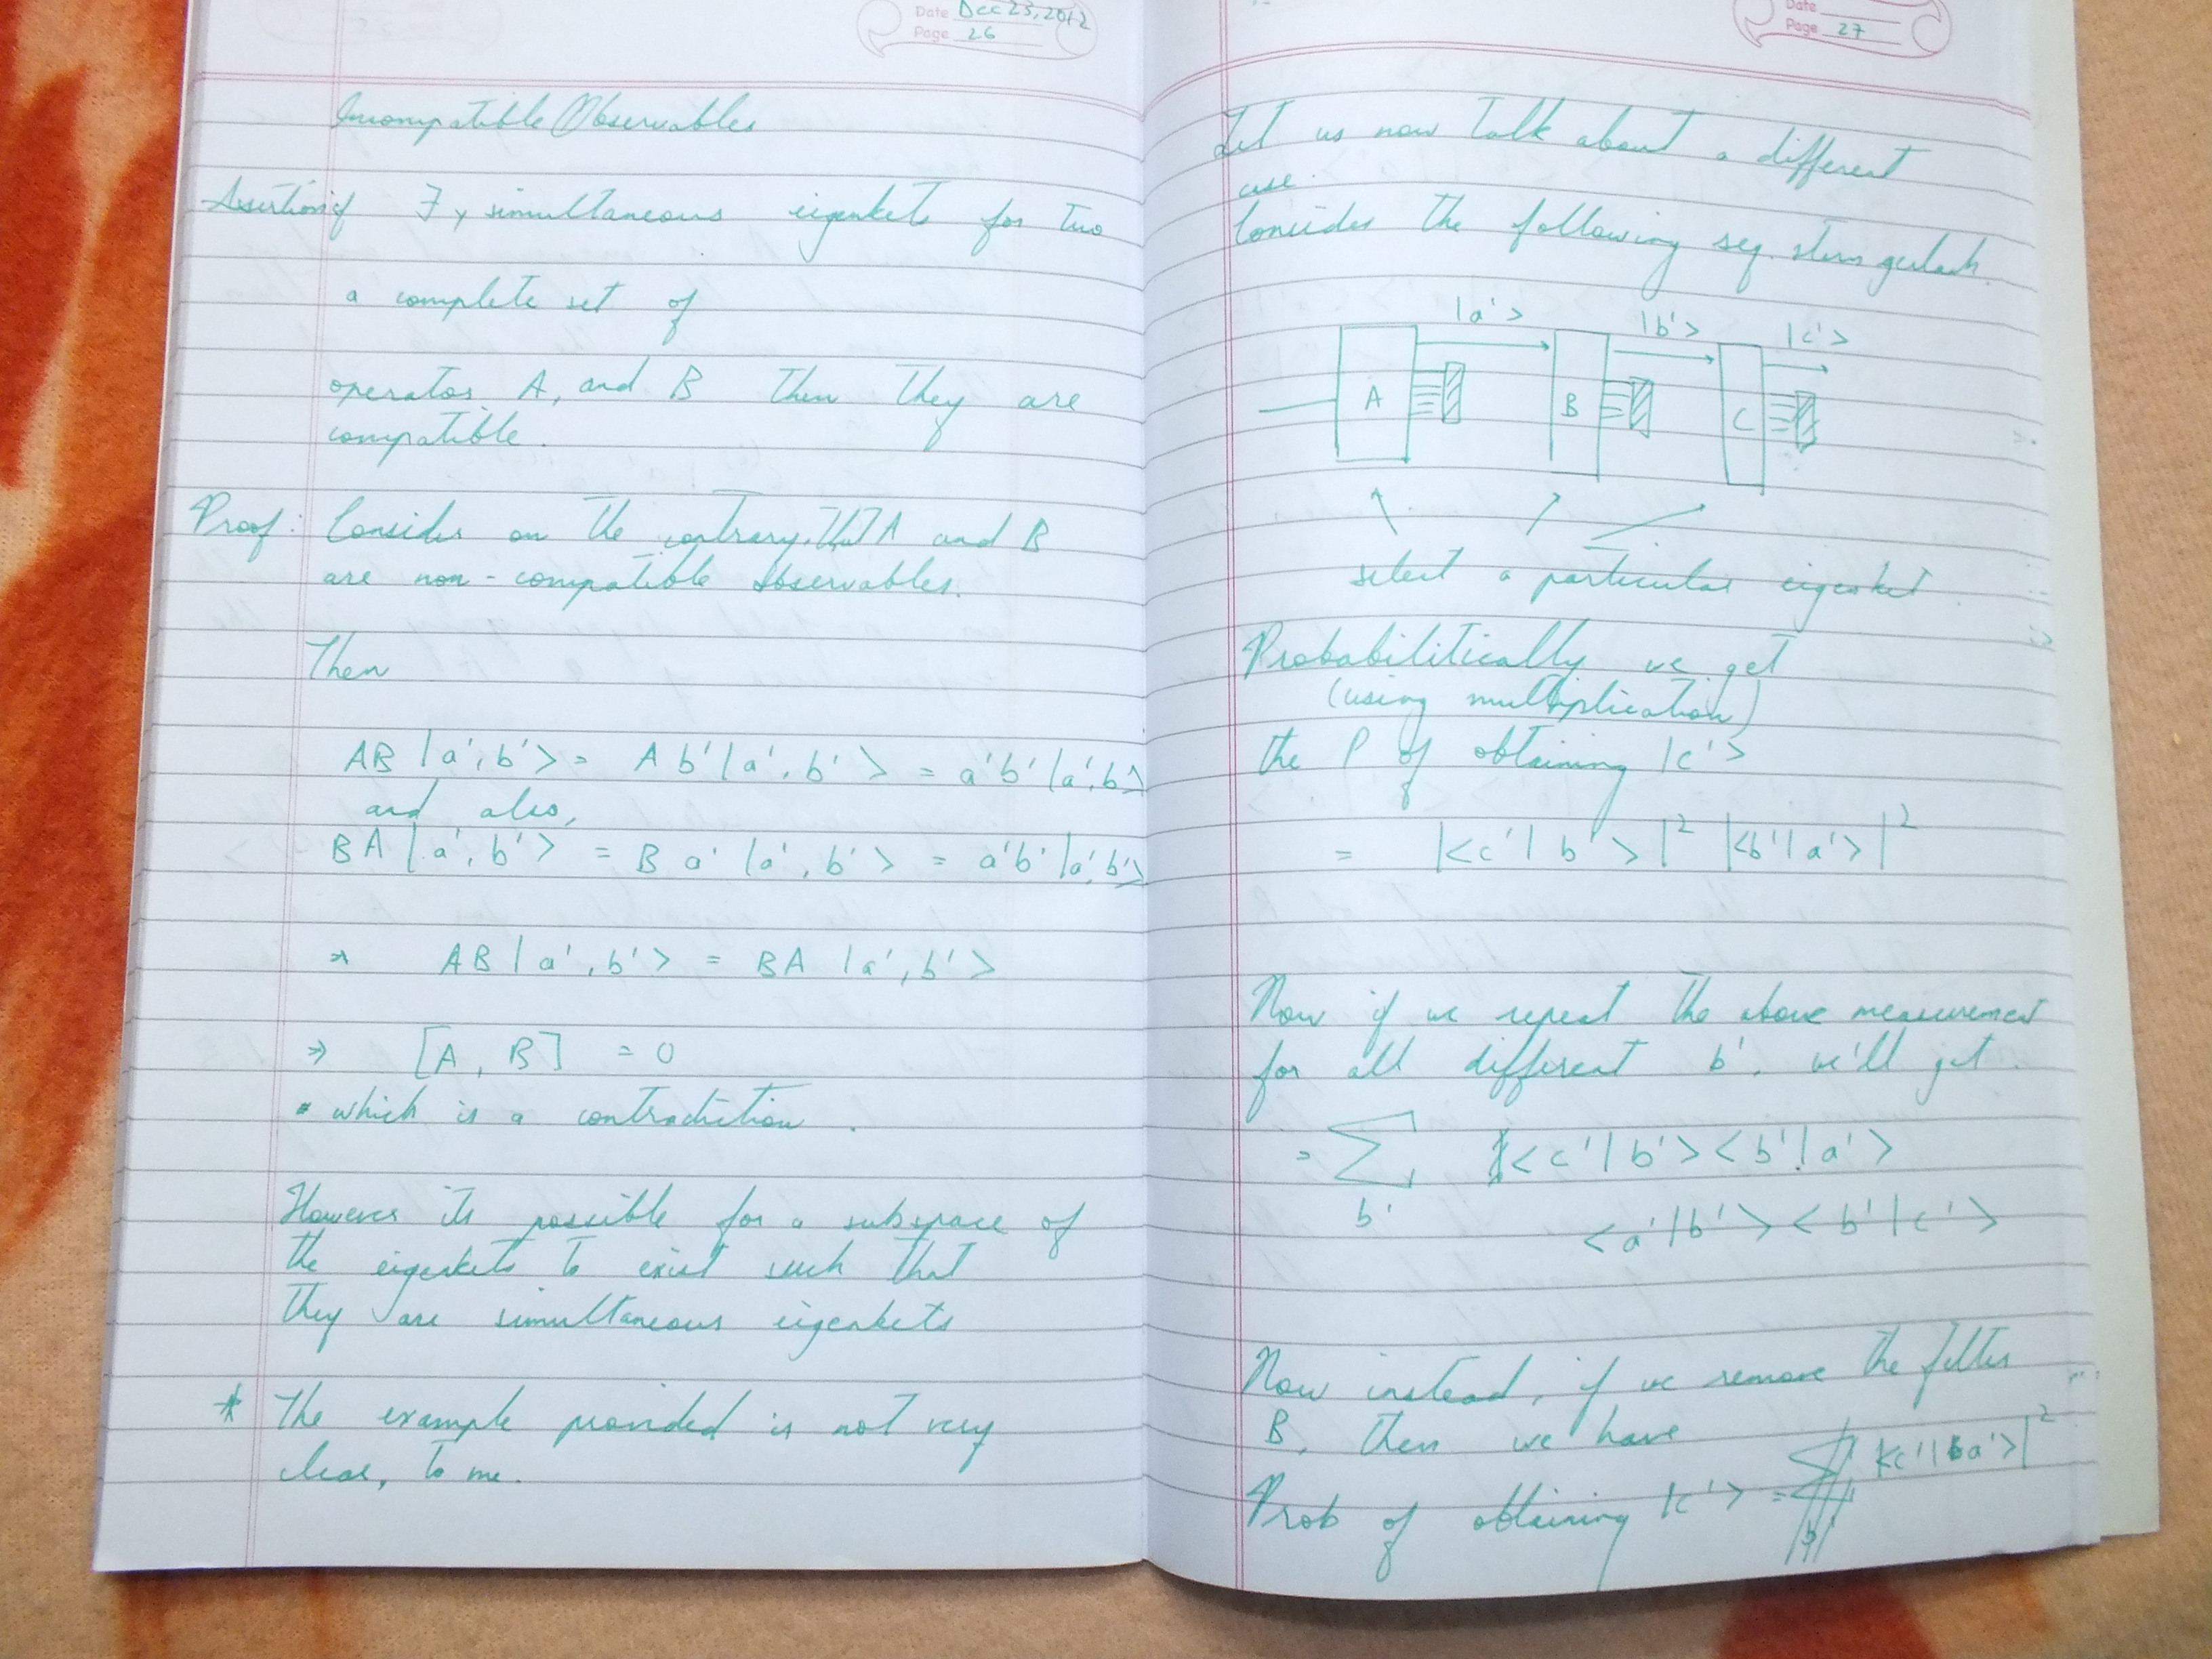 Date Dec 23, 2012
Page 26
Incompatible Observables
Assertion: if ∃ simultaneous eigenkets for two
a complete set of
operators A, and B then they are
compatible.
Proof: Consider on the contrary, that A and B
are non-compatible observables.
Then
AB |a', b'> = A b' |a', b'> = a'b' |a', b'>
and also,
BA |a', b'> = B a' |a', b'> = a'b' |a', b'>
⇒ AB |a', b'> = BA |a', b'>
⇒ [A, B] = 0
which is a contradiction.
However its possible for a subspace of
the eigenkets to exist such that
they are simultaneous eigenkets
* The example provided is not very
clear, to me.
Date
Page 27
Let us now talk about a different
case.
Consider the following seq. stern gerlach.
|a'> |b'> |c'>
A B C
select a particular eigenket
Probabilitically we get
(using multiplication)
the P of obtaining |c'>
= |<c'|b'>|² |<b'|a'>|²
Now if we repeat the above measurement
for all different b', we'll get.
= Σ <c'|b'><b'|a'>
b' <a'|b'><b'|c'>
Now instead, if we remove the filter
B, then we have
Prob of obtaining |c'> = |<c'|a'>|²